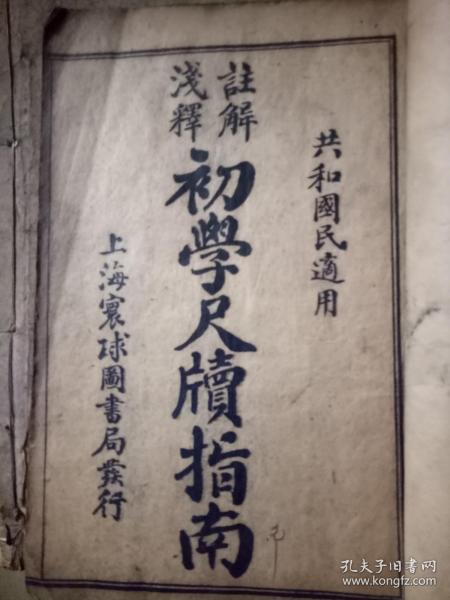 共和國民適用
註解
淺釋
初學尺牘指南
上海寰球圖書局發行
孔夫子旧书网
www.kongfz.com